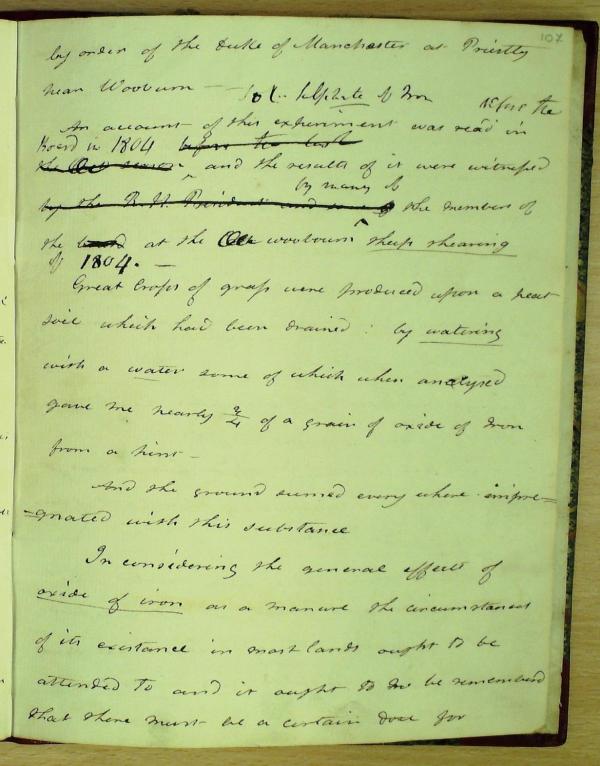 107
by order of the Duke of Manchester at Priestly
near Wooburn — Sol. Sulphate of Iron
An account of this experiment was read before the
Board in 1804 before the last
and the results of it were witnessed
by many of
by the R. H. President and some of the members of
the board at the wooburn sheep shearing
of 1804. —
Great Crops of grass were produced upon a peat
soil which had been drained: by watering
with a water some of which when analysed
gave me nearly 3/4 of a grain of oxide of Iron
from a pint —
And the ground seemed every where impre=
=gnated with this substance
In considering the general effects of
oxide of iron as a manure the circumstances
of its existance in most lands ought to be
attended to and it ought to be remembered
that there must be a certain dose for